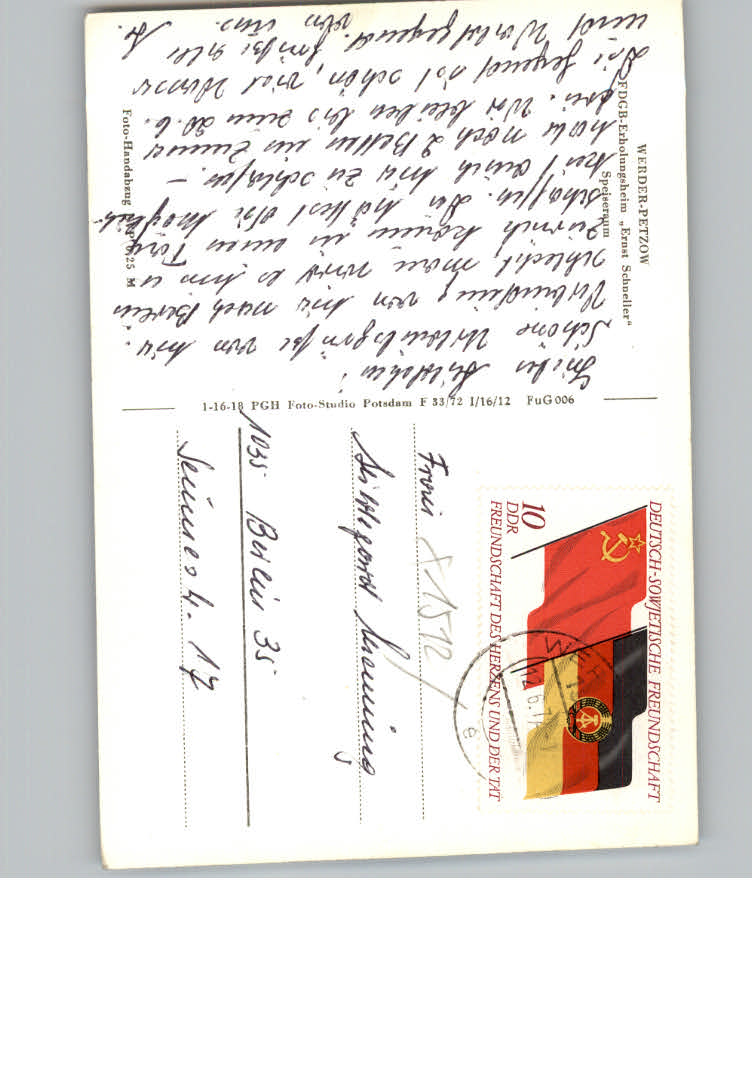 WERDER-PETZOW
FDGB-Erholungsheim „Ernst Schneller“
Speiseraum
Schöne Urlaubsgrüße von hier.
Verbindung von hier nach Berlin
schlecht man wird es kaum
zurück können in einem Tag
schaffen. Du hättest die Möglich-
keit auch hier zu schlafen. –
habe noch 2 Betten im Zimmer
frei. Wir bleiben bis zum 20.6.
Die Gegend ist schön, viel Wasser
und Waldgegend. Grüße alle
von uns.
Foto-Handabzug
25 M
1-16-18 PGH Foto-Studio Potsdam F 33/72 I/16/12 FuG 006
DEUTSCH-SOWJETISCHE FREUNDSCHAFT
10
DDR
FREUNDSCHAFT DES HERZENS UND DER TAT
WER
12.6.7
e
Frau
1512
1035 Berlin 35
17